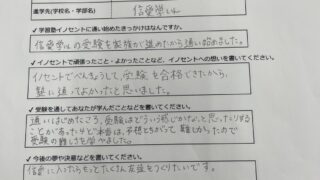 進学先(学校名・学部名)
信愛学いん
✓ 学習塾イノセントに通い始めたきっかけはなんですか。
信愛学いんの受験を家族が進めたから通い始めました。
✓ イノセントで頑張ったこと・よかったことなど、イノセントへの想いを書いてください。
イノセントでべんきょうして、受験を合格できたから、
塾に通ってよかったと思いました。
✓ 受験を通してあなたが学んだことなどを書いてください。
通いはじめたころ、受験はどういう感じかなと思ったりする
ことがあったけど本当は、予想とちがって難しかったので
受験の難しさを学べました。
✓ 今後の夢や決意などを書いてください。
信愛に入ったらもっとたくさん友達をつくりたいです。